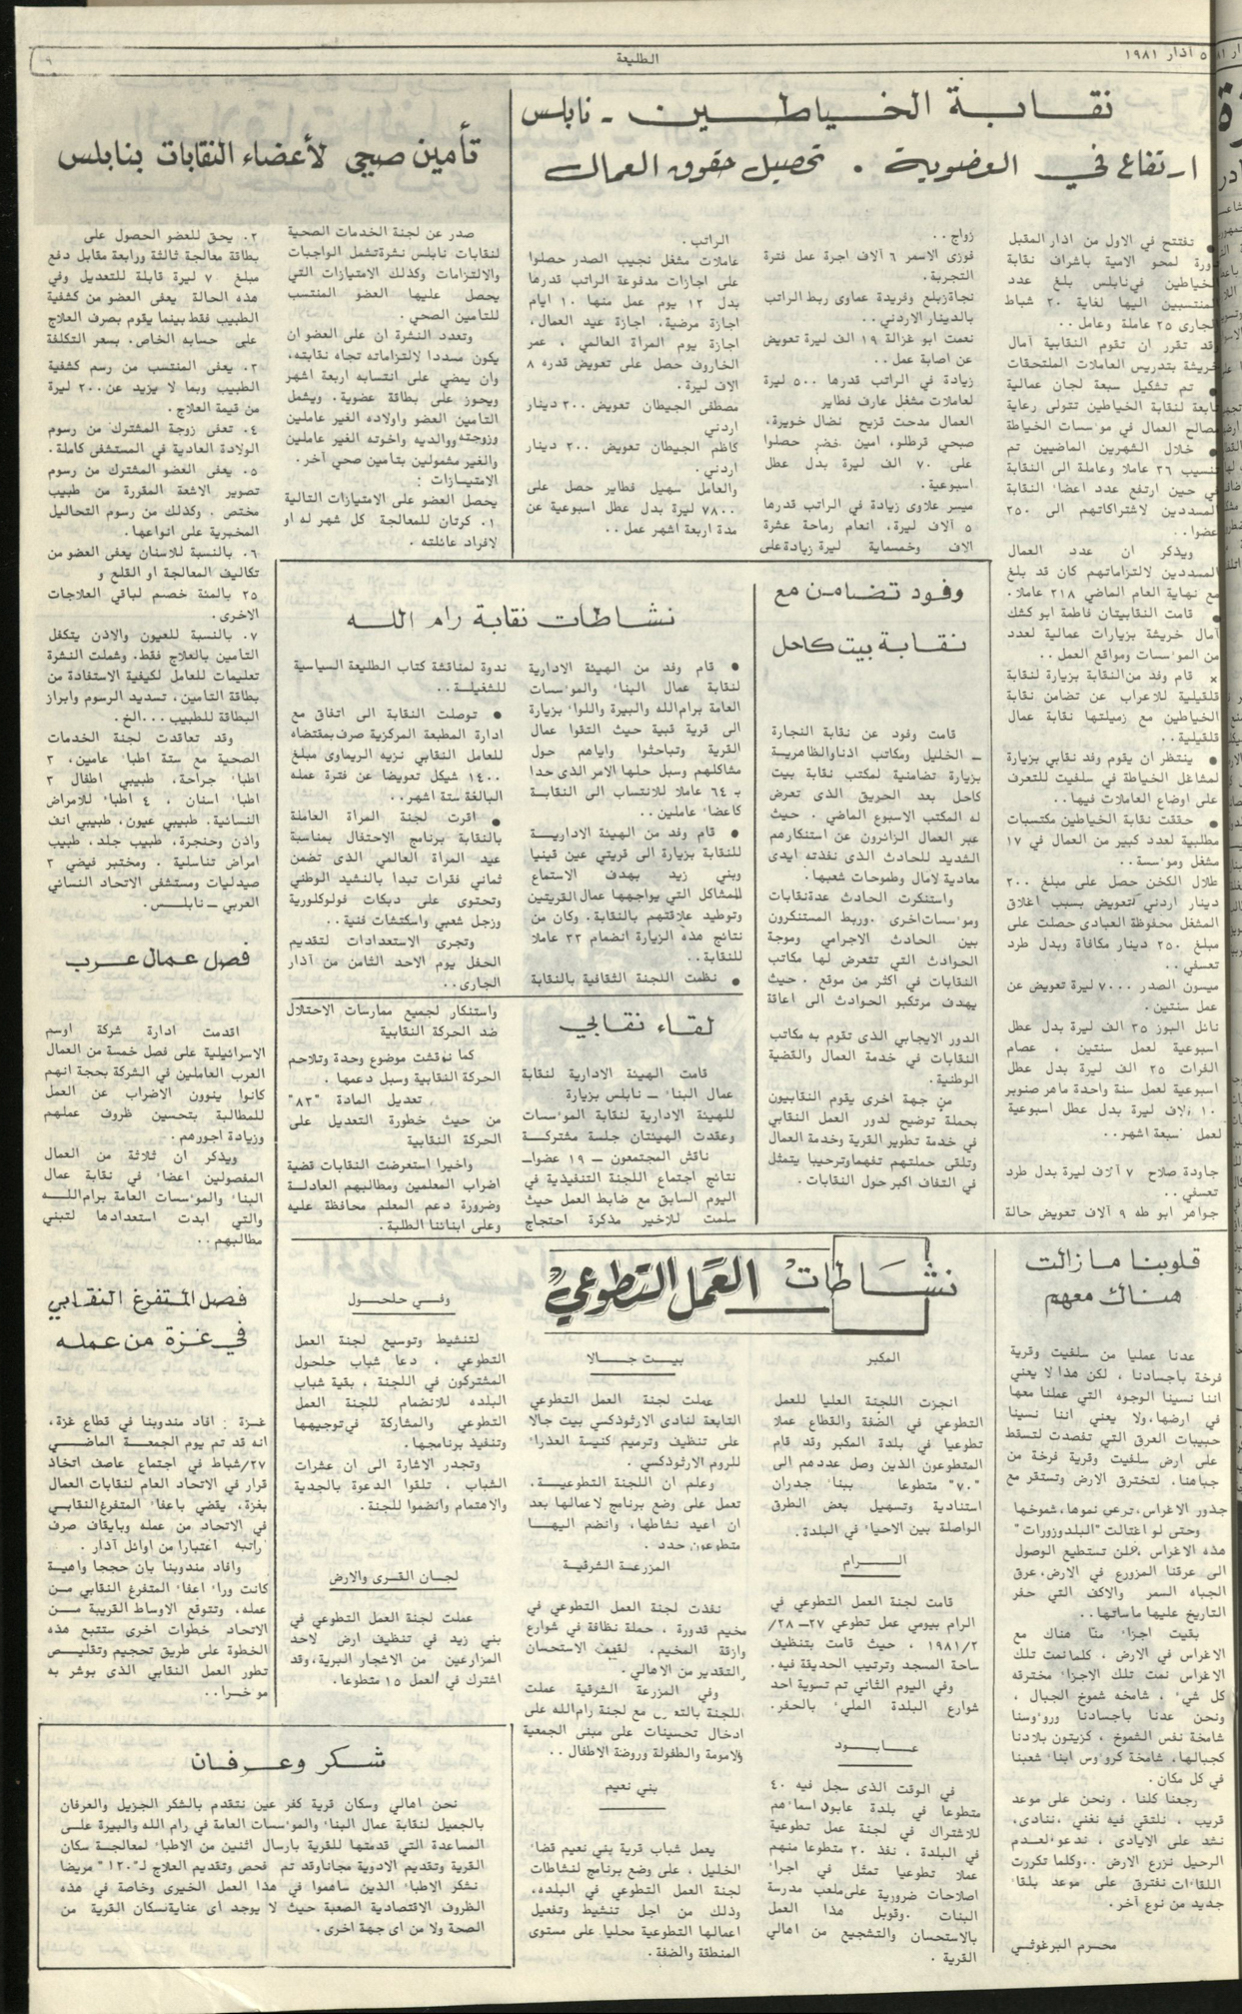 ٥ اذار ١٩٨١
الطليعة
٩
نقابة الخياطين - نابلس
ارتفاع في العضوية . تحصيل حقوق العمال
● تفتتح في الاول من اذار المقبل
دورة لمحو الامية باشراف نقابة
الخياطين في نابلس بلغ عدد
المنتسبين اليها لغاية ٢٠ شباط
الجاري ٢٥ عاملة وعامل..
وقد تقرر ان تقوم النقابية آمال
خريشة بتدريس العاملات الملتحقات
● تم تشكيل سبعة لجان عمالية
تابعة لنقابة الخياطين تتولى رعاية
مصالح العمال في موسسات الخياطة
● خلال الشهرين الماضيين تم
تنسيب ٣٦ عاملا وعاملة الى النقابة
في حين ارتفع عدد اعضاء النقابة
المسددين لاشتراكاتهم الى ٢٥٠
عضوا..
ويذكر ان عدد العمال
المسددين لالتزاماتهم كان قد بلغ
مع نهاية العام الماضي ٢١٨ عاملا.
● قامت النقابيتان فاطمة ابو كشك
آمال خريشة بزيارات عمالية لعدد
من الموسسات ومواقع العمل..
× قام وفد من النقابة بزيارة لنقابة
قلقيلية للاعراب عن تضامن نقابة
الخياطين مع زميلتها نقابة عمال
قلقيلية..
● ينتظر ان يقوم وفد نقابي بزيارة
لمشاغل الخياطة في سلفيت للتعرف
على اوضاع العاملات فيها..
● حققت نقابة الخياطين مكتسبات
مطلبية لعدد كبير من العمال في ١٧
مشغل وموسسة..
طلال الكخن حصل على مبلغ ٢٠٠
دينار اردني لتعويض بسبب اغلاق
المشغل محفوظة العبادى حصلت على
مبلغ ٢٥٠ دينار مكافاة وبدل طرد
تعسفي..
ميسون الصدر ٧٠٠٠ ليرة تعويض عن
عمل سنتين.
نائل البوز ٣٥ الف ليرة بدل عطل
اسبوعية لعمل سنتين ، عصام
الفرات ٢٥ الف ليرة بدل عطل
اسبوعية لعمل سنة واحدة ماهر صنوبر
١٠ آلاف ليرة بدل عطل اسبوعية
لعمل سبعة اشهر..
جاودة صلاح ٧ آلاف ليرة بدل طرد
تعسفي..
جواهر ابو طه ٩ آلاف تعويض حالة
زواج..
فوزى الاسمر ٦ الاف اجرة عمل فترة
التجربة.
نجاة زبلع وفريدة عماوى ربط الراتب
بالدينار الاردني..
نعمت ابو غزالة ١٩ الف ليرة تعويض
عن اصابة عمل..
زيادة في الراتب قدرها ٥٠٠ ليرة
لعاملات مشغل عارف فطاير
العمال مدحت قزيح نضال خويرة،
صبحي قرطلو، امين خضر حصلوا
على ٧٠ الف ليرة بدل عطل
اسبوعية.
ميسر علاوى زيادة في الراتب قدرها
٥ الاف ليرة، انعام رماحة عشرة
الاف وخمسماية ليرة زيادة على
الراتب.
عاملات مشغل نجيب الصدر حصلوا
على اجازات مدفوعة الراتب قدرها
بدل ١٢ يوم عمل منها ١٠ ايام
اجازة مرضية، اجازة عيد العمال،
اجازة يوم المراة العالمي ، عمر
الخاروف حصل على تعويض قدره ٨
الاف ليرة.
مصطفى الجيطان تعويض ٢٠٠ دينار
اردني
كاظم الجيطان تعويض ٢٠٠ دينار
اردني.
والعامل سهيل فطاير حصل على
٧٨٠٠ ليرة بدل عطل اسبوعية عن
مدة اربعة اشهر عمل..
تأمين صحي لأعضاء النقابات بنابلس
صدر عن لجنة الخدمات الصحية
لنقابات نابلس نشرة تشمل الواجبات
والالتزامات وكذلك الامتيازات التي
يحصل عليها العضو المنتسب
للتامين الصحي.
وتعدد النشرة ان على العضو ان
يكون مسددا لالتزاماته تجاه نقابته،
وان يمضي على انتسابه اربعة اشهر
ويحوز على بطاقة عضوية. ويشمل
التامين العضو واولاده الغير عاملين
وزوجته ووالديه واخوته الغير عاملين
والغير مشمولين بتامين صحي آخر.
الامتيازات :
يحصل العضو على الامتيازات التالية
١. كرتان للمعالجة كل شهر له او
لافراد عائلته .
٢. يحق للعضو الحصول على
بطاقة معالجة ثالثة ورابعة مقابل دفع
مبلغ ٧٠ ليرة قابلة للتعديل وفي
هذه الحالة يعفى العضو من كشفية
الطبيب فقط بينما يقوم بصرف العلاج
على حسابه الخاص، بسعر التكلفة
٣. يعفى المنتسب من رسم كشفية
الطبيب وبما لا يزيد عن ٢٠٠ ليرة
من قيمة العلاج.
٤. تعفى زوجة المشترك من رسوم
الولادة العادية في المستشفى كاملة.
٥. يعفى العضو المشترك من رسوم
تصوير الاشعة المقررة من طبيب
مختص ، وكذلك من رسوم التحاليل
المخبرية على انواعها.
٦. بالنسبة للاسنان يعفى العضو من
تكاليف المعالجة او القلع و
٢٥ بالمئة خصم لباقي العلاجات
الاخرى.
٧. بالنسبة للعيون والاذن يتكفل
التامين بالعلاج فقط. وشملت النشرة
تعليمات للعامل لكيفية الاستفادة من
بطاقة التامين، تسديد الرسوم وابراز
البطاقة للطبيب ...الخ.
وقد تعاقدت لجنة الخدمات
الصحية مع ستة اطباء عامين، ٣
اطباء جراحة، طبيبي اطفال ٣
اطباء اسنان ، ٤ اطباء للامراض
النسائية. طبيبي عيون، طبيبي انف
واذن وحنجرة، طبيب جلد، طبيب
امراض تناسلية ، ومختبر فيضي ٣
صيدليات ومستشفى الاتحاد النسائي
العربي – نابلس.
وفود تضامن مع
نقابة بيت كاحل
قامت وفود عن نقابة النجارة
– الخليل ومكاتب اذنا والظاهرية
بزيارة تضامنية لمكتب نقابة بيت
كاحل بعد الحريق الذى تعرض
له المكتب الاسبوع الماضي . حيث
عبر العمال الزائرون عن استنكارهم
الشديد للحادث الذى نفذته ايدى
معادية لامال وطموحات شعبها.
واستنكرت الحادث عدة نقابات
وموسسات اخرى .وربط المستنكرون
بين الحادث الاجرامي وموجة
الحوادث التي تتعرض لها مكاتب
النقابات في اكثر من موقع ، حيث
يهدف مرتكبو الحوادث الى اعاقة
الدور الايجابي الذى تقوم به مكاتب
النقابات في خدمة العمال والقضية
الوطنية.
من جهة اخرى يقوم النقابيون
بحملة توضيح لدور العمل النقابي
في خدمة تطوير القرية وخدمة العمال
وتلقى حملتهم تفهما وترحيبا يتمثل
في التفاف اكبر حول النقابات.
نشاطات نقابة رام الله
● قام وفد من الهيئة الادارية
لنقابة عمال البناء والموسسات
العامة برام الله والبيرة واللواء بزيارة
الى قرية قبية حيث التقوا عمال
القرية وتباحثوا واياهم حول
مشاكلهم وسبل حلها الامر الذى حدا
بـ ٦٤ عاملا للانتساب الى النقابة
كاعضاء عاملين..
● قام وفد من الهيئة الادارية
للنقابة بزيارة الى قريتي عين قينيا
وبني زيد بهدف الاستماع
للمشاكل التي يواجهها عمال القريتين
وتوطيد علاقتهم بالنقابة، وكان من
نتائج هذه الزيارة انضمام ٣٣ عاملا
للنقابة..
● نظمت اللجنة الثقافية بالنقابة
ندوة لمناقشة كتاب الطليعة السياسية
للشغيلة..
● توصلت النقابة الى اتفاق مع
ادارة المطبعة المركزية صرف بمقتضاه
للعامل النقابي نزيه الريماوى مبلغ
١٤٠٠ شيكل تعويضا عن فترة عمله
البالغة ستة اشهر..
● اقرت لجنة المراة العاملة
بالنقابة برنامج الاحتفال بمناسبة
عيد المراة العالمي الذى تضمن
ثماني فقرات تبدا بالنشيد الوطني
وتحتوى على دبكات فولوكلورية
وزجل شعبي واسكتشات فنية..
وتجرى الاستعدادات لتقديم
الحفل يوم الاحد الثامن من آذار
الجارى..
لقاء نقابي
قامت الهيئة الادارية لنقابة
عمال البناء – نابلس بزيارة
للهيئة الادارية لنقابة الموسسات
وعقدت الهيئتان جلسة مشتركة
ناقش المجتمعون – ١٩ عضوا–
نتائج اجتماع اللجنة التنفيذية في
اليوم السابق مع ضابط العمل حيث
سلمت للاخير مذكرة احتجاج
واستنكار لجميع ممارسات الاحتلال
ضد الحركة النقابية
كما نوقشت موضوع وحدة وتلاحم
الحركة النقابية وسبل دعمها .
تعديل المادة "٨٣"
من حيث خطورة التعديل على
الحركة النقابية
واخيرا استعرضت النقابات قضية
اضراب المعلمين ومطالبهم العادلة
وضرورة دعم المعلم محافظة عليه
وعلى ابنائنا الطلبة.
فصل عمال عرب
اقدمت ادارة شركة اوسم
الاسرائيلية على فصل خمسة من العمال
العرب العاملين في الشركة بحجة انهم
كانوا ينوون الاضراب عن العمل
للمطالبة بتحسين ظروف عملهم
وزيادة اجورهم.
ويذكر ان ثلاثة من العمال
المفصولين اعضاء في نقابة عمال
البناء والموسسات العامة برام الله
والتي ابدت استعدادها لتبني
مطالبهم..
فصل المتفرغ النقابي
في غزة من عمله
غزة : افاد مندوبنا في قطاع غزة،
انه قد تم يوم الجمعة الماضي
٢٧/شباط في اجتماع عاصف اتخاذ
قرار في الاتحاد العام لنقابات العمال
بغزة، يقضي باعفاء المتفرغ النقابي
في الاتحاد من عمله وبايقاف صرف
راتبه اعتبارا من اوائل آذار .
وافاد مندوبنا بان حججا واهية
كانت وراء اعفاء المتفرغ النقابي من
عمله، وتتوقع الاوساط القريبة من
الاتحاد خطوات اخرى ستتبع هذه
الخطوة على طريق تحجيم وتقليص
تطور العمل النقابي الذى بوشر به
موخرا..
قلوبنا ما زالت
هناك معهم
عدنا عمليا من سلفيت وقرية
فرخة باجسادنا ، لكن هذا لا يعني
اننا نسينا الوجوه التي عملنا معها
في ارضها، ولا يعني اننا نسينا
حبيبات العرق التي تفصدت لتسقط
على ارض سلفيت وقرية فرخة من
جباهنا. لتخترق الارض وتستقر مع
جذور الاغراس، ترعي نموها، شموخها
وحتى لو اغتالت "البلدوزورات"
هذه الاغراس ،فلن تستطيع الوصول
الى عرقنا المزروع في الارض، عرق
الجباه السمر والاكف التي حفر
التاريخ عليها ماساتها..
بقيت اجزاء منا هناك مع
الاغراس في الارض ، كلما نمت تلك
الاغراس نمت تلك الاجزاء مخترقه
كل شيء ، شامخه شموخ الجبال ،
ونحن عدنا باجسادنا وروءوسنا
شامخة نفس الشموخ ، كزيتون بلادنا
كجبالها، شامخة كروءوس ابناء شعبنا
في كل مكان.
رجعنا كلنا ، ونحن على موعد
قريب ، نلتقي فيه نغني ،ننادى،
نشد على الايادى ، ندعو لعدم
الرحيل نزرع الارض ..وكلما تكررت
اللقاءات نفترق على موعد بلقاء
جديد من نوع آخر.
محرم البرغوثي
نشاطات العمل التطوعي
المكبر
انجزت اللجنة العليا للعمل
التطوعي في الضفة والقطاع عملا
تطوعيا في بلدة المكبر وقد قام
المتطوعون الذين وصل عددهم الى
"٧٠" متطوعا ببناء جدران
استنادية وتسهيل بعض الطرق
الواصلة بين الاحياء في البلدة.
الرام
قامت لجنة العمل التطوعي في
الرام بيومي عمل تطوعي ٢٧–٢٨/
١٩٨١/٢ ، حيث قامت بتنظيف
ساحة المسجد وترتيب الحديقة فيه.
وفي اليوم الثاني تم تسوية احد
شوارع البلدة المليء بالحفر.
عابود
في الوقت الذى سجل فيه ٤٠
متطوعا في بلدة عابود اسماءهم
للاشتراك في لجنة عمل تطوعية
في البلدة ، نفذ ٢٠ متطوعا منهم
عملا تطوعيا تمثل في اجراء
اصلاحات ضرورية على ملعب مدرسة
البنات .وقوبل هذا العمل
بالاستحسان والتشجيع من اهالي
القرية .
بيت جالا
عملت لجنة العمل التطوعي
التابعة لنادى الارثوذكسي بيت جالا
على تنظيف وترميم كنيسة العذراء
للروم الارثوذكسي.
وعلم ان اللجنة التطوعية.
تعمل على وضع برنامج لاعمالها بعد
ان اعيد نشاطها، وانضم اليها
متطوعون جدد .
المزرعة الشرقية
نفذت لجنة العمل التطوعي في
مخيم قدورة ، حملة نظافة في شوارع
وازقة المخيم. لقيت الاستحسان
والتقدير من الاهالي.
وفي المزرعة الشرقية عملت
اللجنة مع لجنة رام الله على
ادخال تحسينات على مبنى الجمعية
والامومة والطفولة وروضة الاطفال..
بني نعيم
يعمل شباب قرية بني نعيم قضاء
الخليل ، على وضع برنامج لنشاطات
لجنة العمل التطوعي في البلده،
وذلك من اجل تنشيط وتفعيل
اعمالها التطوعية محليا على مستوى
المنطقة والضفة.
وفي حلحول
لتنشيط وتوسيع لجنة العمل
التطوعي ، دعا شباب حلحول
المشتركون في اللجنة ، بقية شباب
البلده للانضمام للجنة العمل
التطوعي والمشاركة في توجيهها
وتنفيذ برنامجها.
وتجدر الاشارة الى ان عشرات
الشباب ، تلقوا الدعوة بالجدية
والاهتمام وانضموا للجنة.
لجان القرى والارض
عملت لجنة العمل التطوعي في
بني زيد في تنظيف ارض لاحد
المزارعين من الاشجار البرية، وقد
اشترك في العمل ١٥ متطوعا.
شكر وعرفان
نحن اهالي وسكان قرية كفر عين نتقدم بالشكر الجزيل والعرفان
بالجميل لنقابة عمال البناء والموسسات العامة في رام الله والبيرة على
المساعدة التي قدمتها للقرية بارسال اثنين من الاطباء لمعالجة سكان
القرية وتقديم الادوية مجانا وقد تم فحص وتقديم العلاج لـ"١٢٠" مريضا
نشكر الاطباء الذين ساهموا في هذا العمل الخيرى وخاصة في هذه
الظروف الاقتصادية الصعبة حيث لا يوجد أى عناية بسكان القرية من
الصحة ولا من اى جهة اخرى.